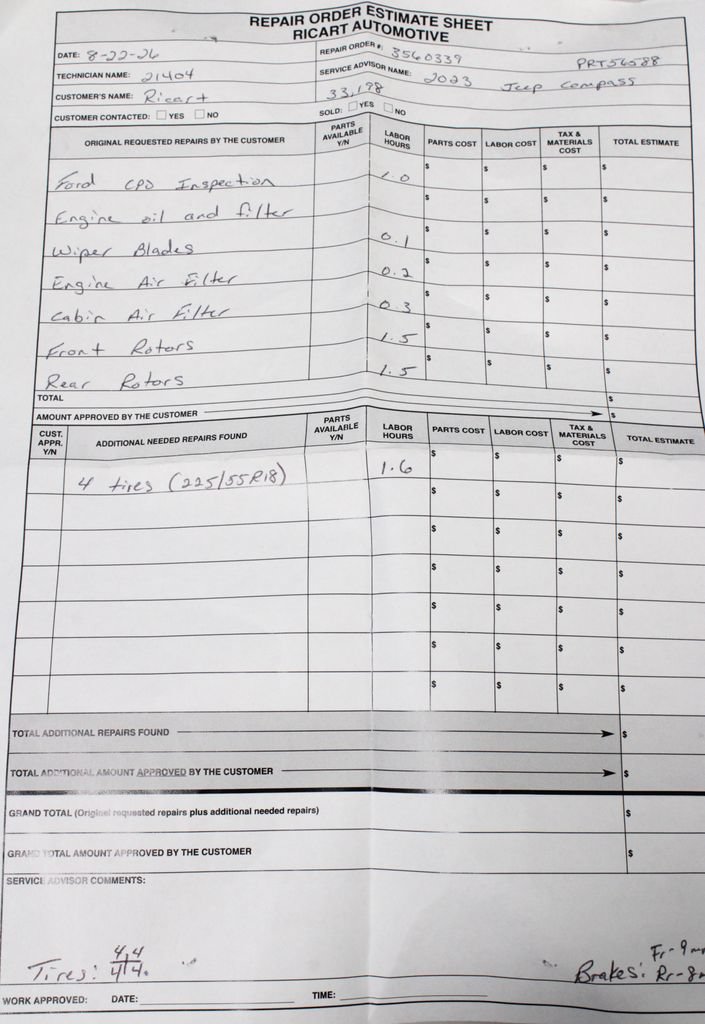 REPAIR ORDER ESTIMATE SHEET
RICART AUTOMOTIVE
DATE: 8-22-26
REPAIR ORDER #: 3560339
PRT56588
TECHNICIAN NAME: 21404
SERVICE ADVISOR NAME: 2023 Jeep Compass
CUSTOMER'S NAME: Ricart
33,198
CUSTOMER CONTACTED: YES NO
SOLD: YES NO
ORIGINAL REQUESTED REPAIRS BY THE CUSTOMER PARTS AVAILABLE Y/N LABOR HOURS PARTS COST LABOR COST TAX & MATERIALS COST TOTAL ESTIMATE
Ford CPO Inspection 1.0 $ $ $ $
Engine oil and filter $ $ $ $
Wiper Blades 0.1 $ $ $ $
Engine Air Filter 0.2 $ $ $ $
Cabin Air Filter 0.3 $ $ $ $
Front Rotors 1.5 $ $ $ $
Rear Rotors 1.5 $ $ $ $
TOTAL $
AMOUNT APPROVED BY THE CUSTOMER $
CUST. APPR. Y/N ADDITIONAL NEEDED REPAIRS FOUND PARTS AVAILABLE Y/N LABOR HOURS PARTS COST LABOR COST TAX & MATERIALS COST TOTAL ESTIMATE
4 tires (225/55R18) 1.6 $ $ $ $
$ $ $ $
$ $ $ $
$ $ $ $
$ $ $ $
$ $ $ $
$ $ $ $
TOTAL ADDITIONAL REPAIRS FOUND $
TOTAL ADDITIONAL AMOUNT APPROVED BY THE CUSTOMER $
GRAND TOTAL (Original requested repairs plus additional needed repairs) $
GRAND TOTAL AMOUNT APPROVED BY THE CUSTOMER $
SERVICE ADVISOR COMMENTS:
Tires: 4 4
4 4
Fr-9m
Brakes: Rr-8
WORK APPROVED: DATE: TIME: